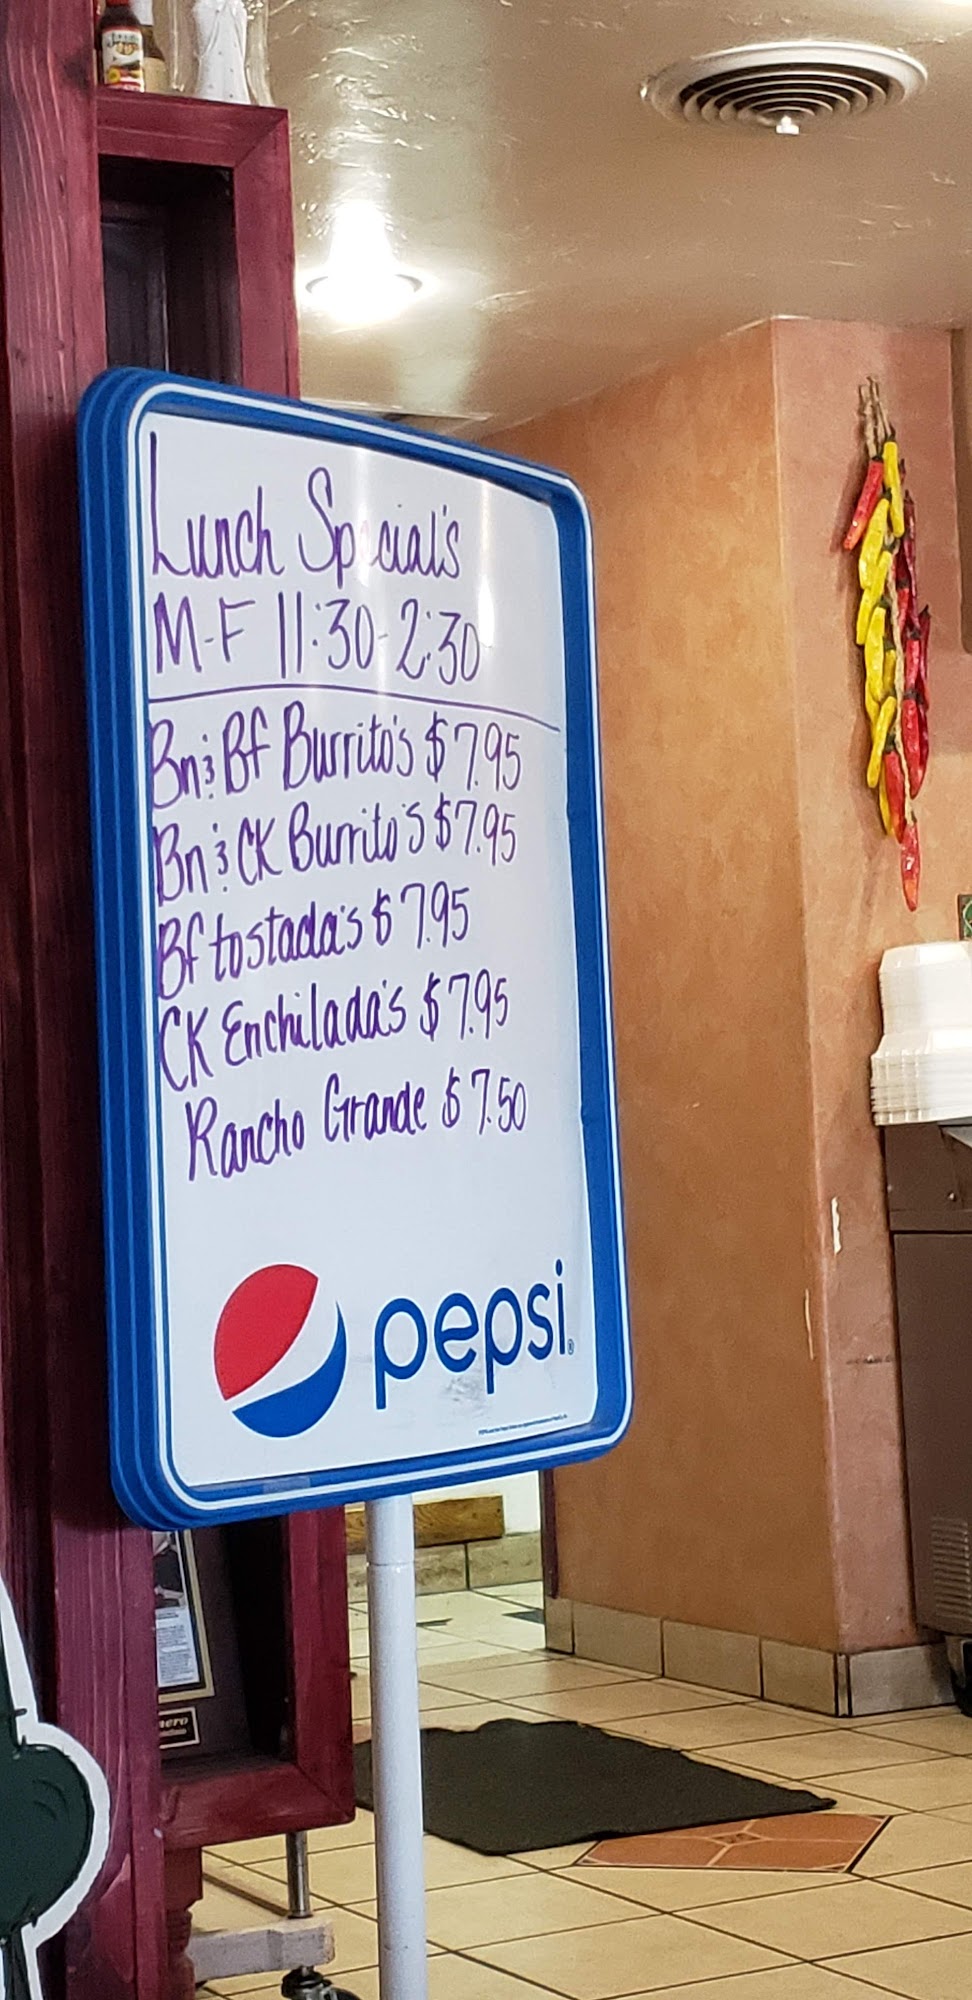 Lunch Special's
M-F 11:30-2:30
Bn & Bf Burrito's $7.95
Bn & CK Burrito's $7.95
Bf tostada's $7.95
CK Enchilada's $7.95
Rancho Grande $7.50
pepsi